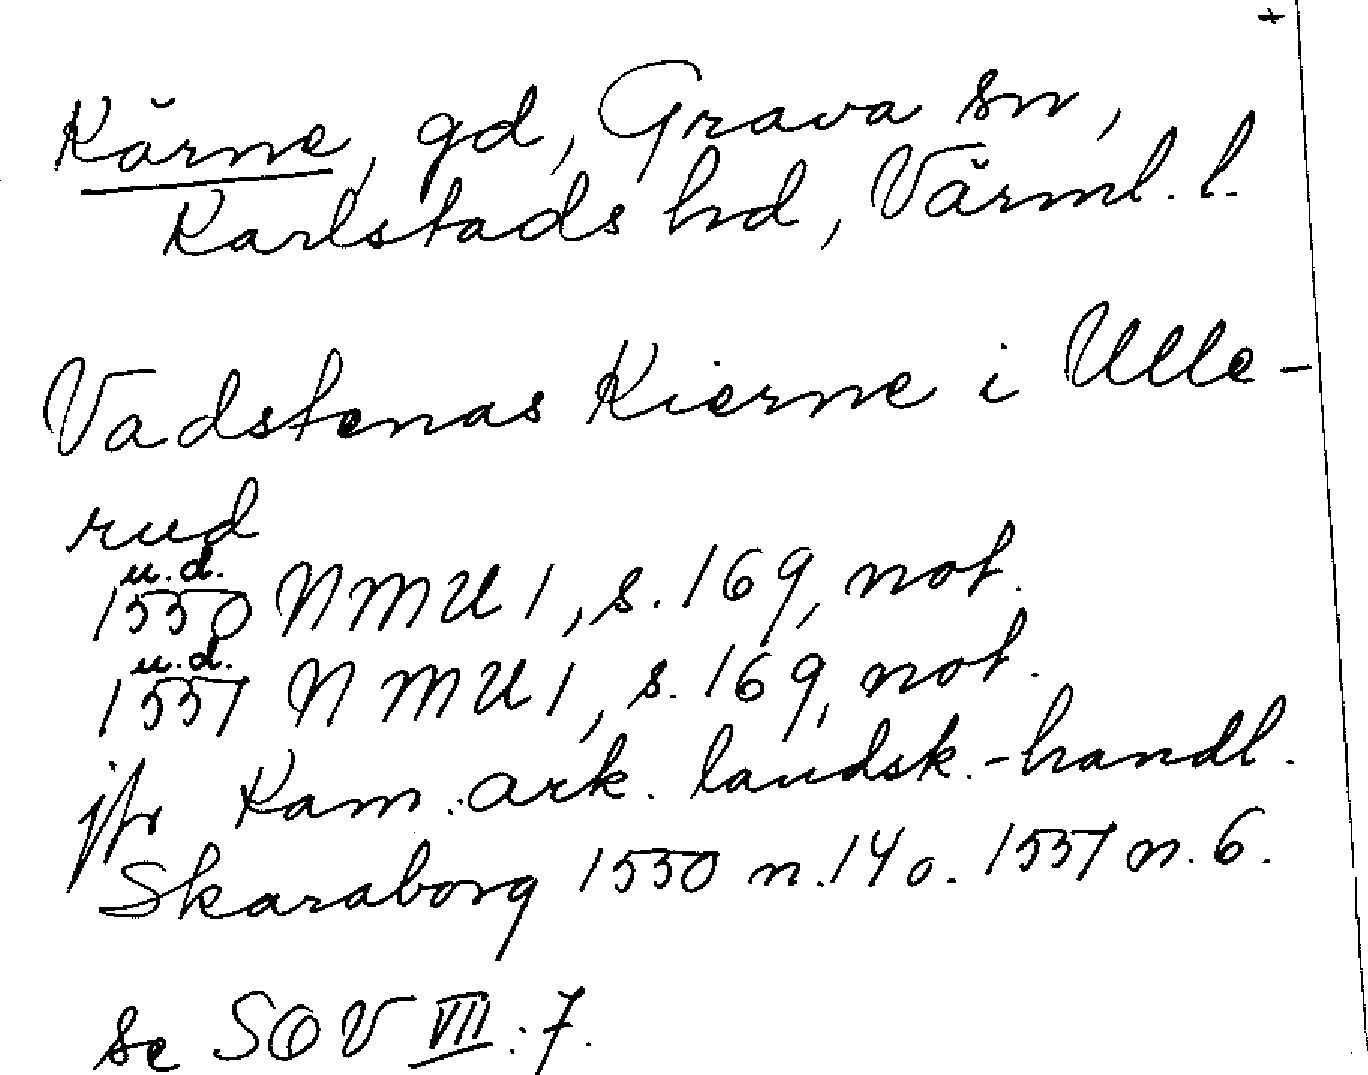 +
Kärne, gd, Grava sn,
Karlstads hd, Värml. l.
Vadstenas Kierne i Ulle-
rud
u.d.
1550 NMU 1, s. 169, not.
u.d.
1557 NMU 1, s. 169, not.
jfr Kam. ark. landsk.-handl.
Skaraborg 1550 n. 14 o. 1557 n. 6.
se SOV VII: 7.